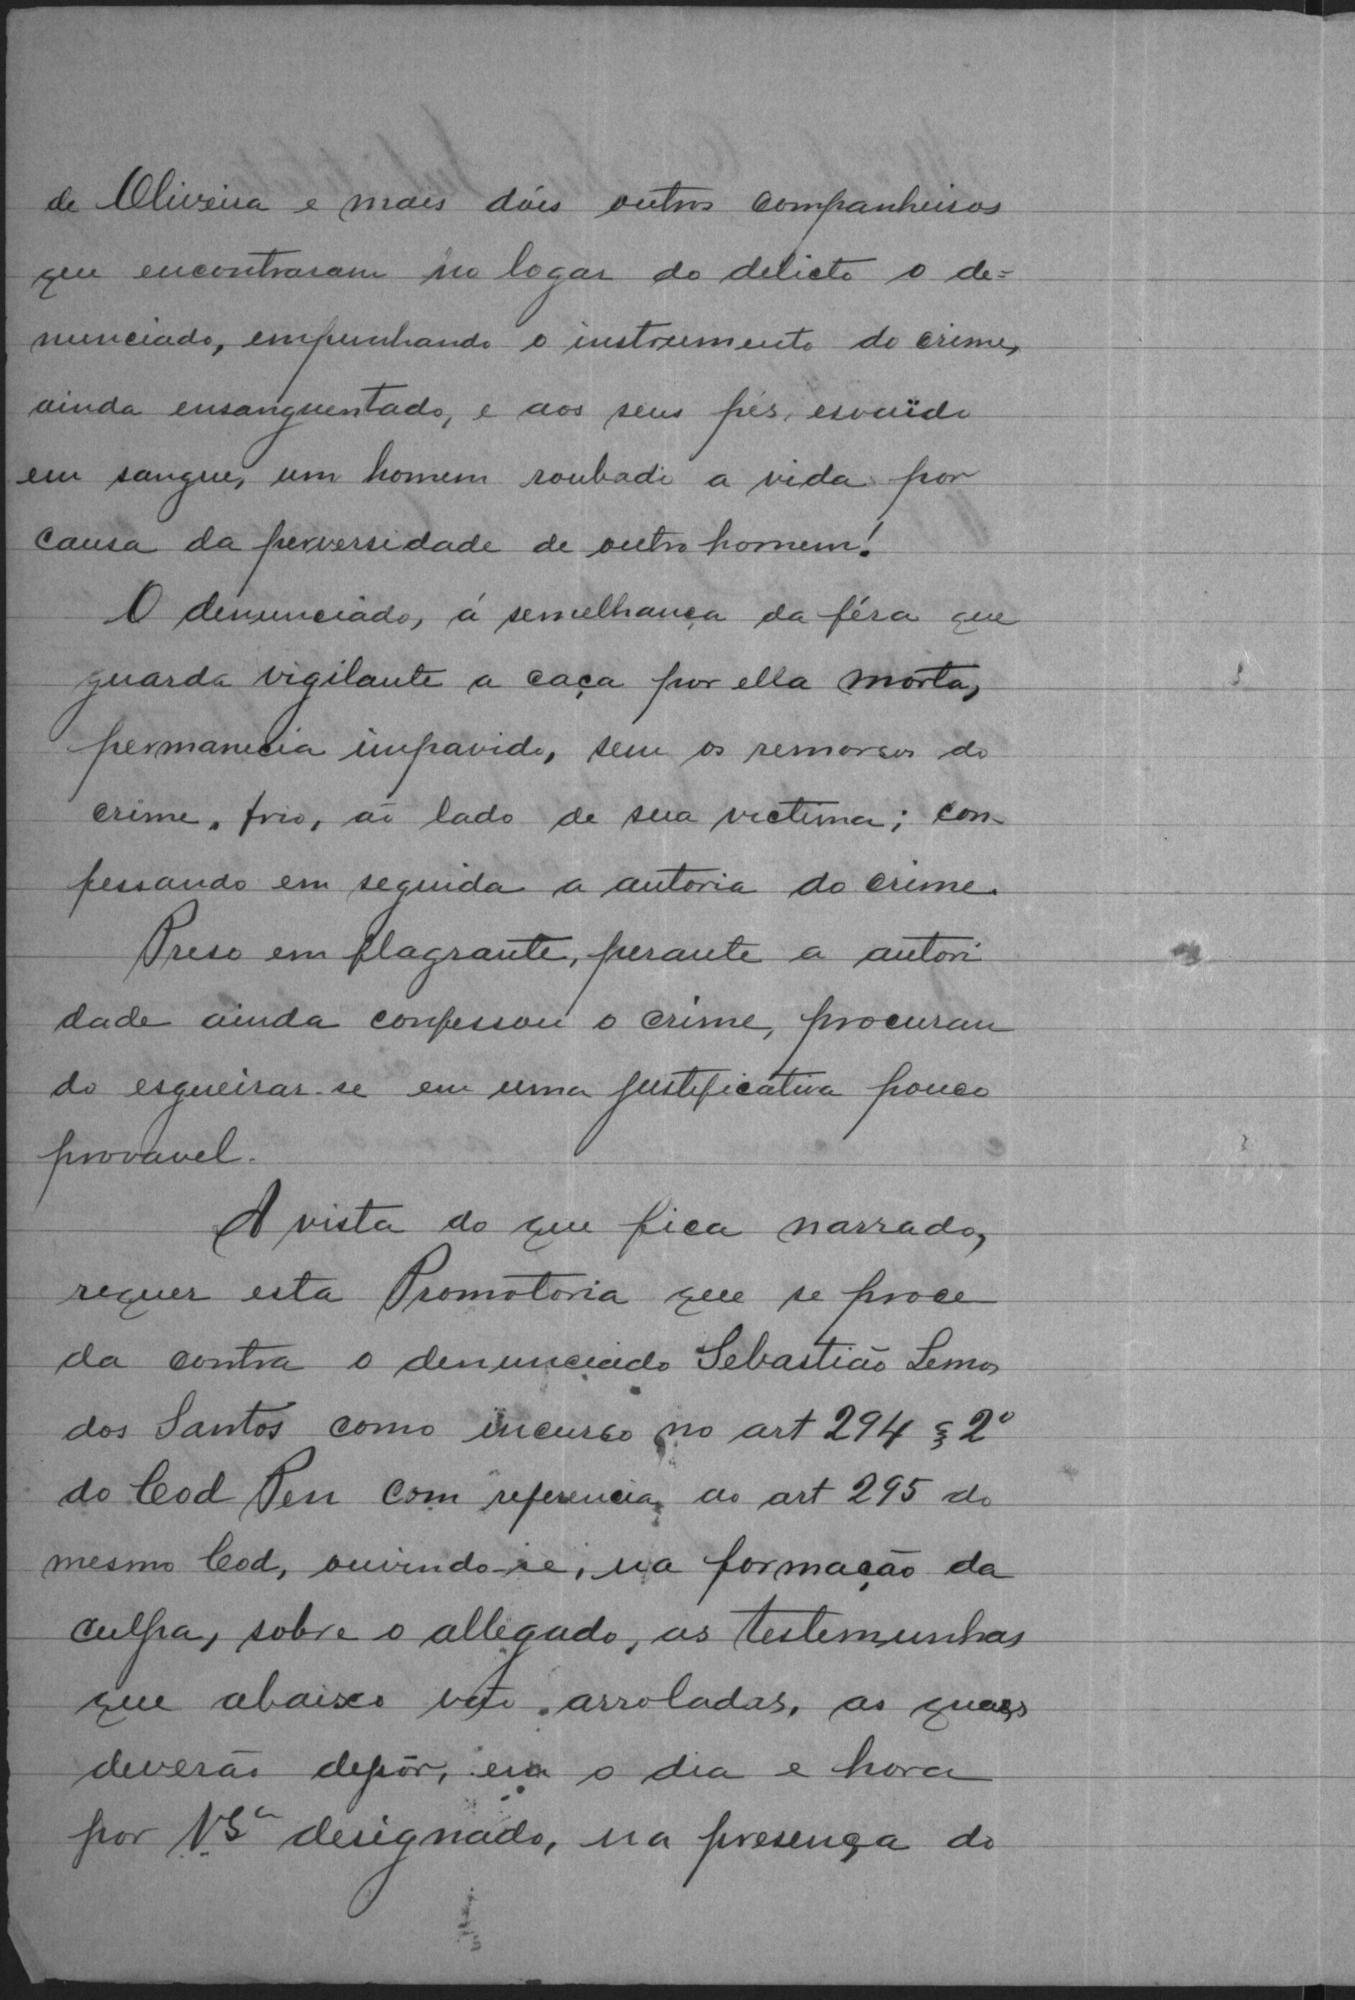 de Oliveira e mais dóis outros companheiros
que encontraram no logar do delicto o de=
nunciado, empunhando o instrumento do crime,
ainda ensanguentado, e aos seus pés, esvaïdo
em sangue, um homem roubado a vida por
causa da perversidade de outro homem!
O denunciado, á semelhança da féra que
guarda vigilante a caça por ella morta,
permanecia impavido, sem os remorsos do
crime, frio, ao lado de sua victima; con-
fessando em seguida a autoria do crime.
Preso em flagrante, perante a autori
dade ainda confessou o crime, procuran
do esgueirar-se em uma justificativa pouco
provavel.
A vista do que fica narrado,
requer esta Promotoria que se proce
da contra o denunciado Sebastião Lemos
dos Santos como incurso no art 294 § 2º
do Cod Pen com referencia ao art 295 do
mesmo Cod, ouvindo-se, na formação da
culpa, sobre o allegado, as testemunhas
que abaixo vão arroladas, as quaes
deverão depôr, em o dia e hora
por VSª designado, na presença do